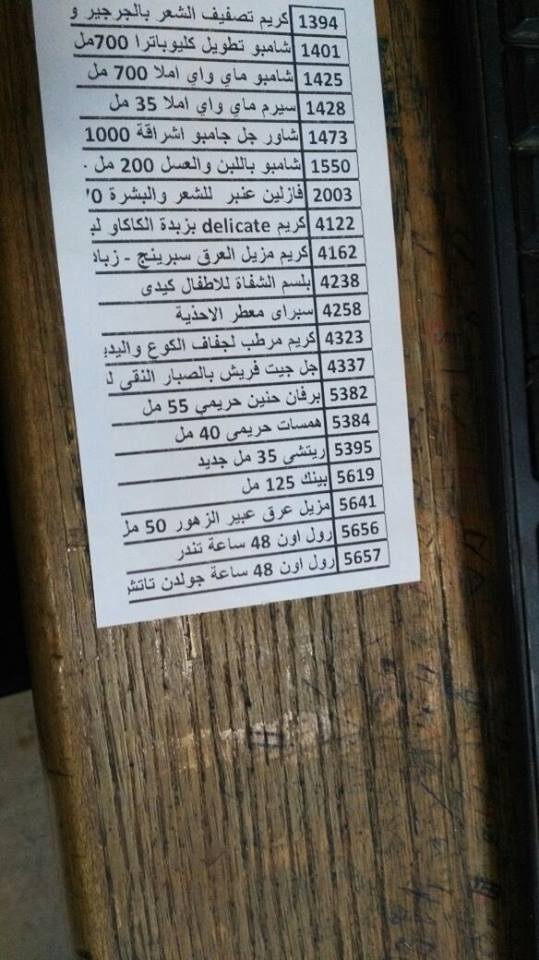 1394 كريم تصفيف الشعر بالجرجير و
1401 شامبو تطويل كليوباترا 700مل
1425 شامبو ماي واي املا 700 مل
1428 سيرم ماي واي املا 35 مل
1473 شاور جل جامبو اشراقة 1000
1550 شامبو باللبن والعسل 200 مل -
2003 فازلين عنبر للشعر والبشرة
4122 كريم delicate بزبدة الكاكاو
4162 كريم مزيل العرق سبرينج - زباد
4238 بلسم الشفاة للاطفال كيدى
4258 سبراى معطر الاحذية
4323 كريم مرطب لجفاف الكوع واليدي
4337 جل جيت فريش بالصبار النقى
5382 برفان حنين حريمي 55 مل
5384 همسات حريمى 40 مل
5395 ريتشى 35 مل جديد
5619 بينك 125 مل
5641 مزيل عرق عبير الزهور 50 مل
5656 رول اون 48 ساعة تندر
5657 رول اون 48 ساعة جولدن تاتش